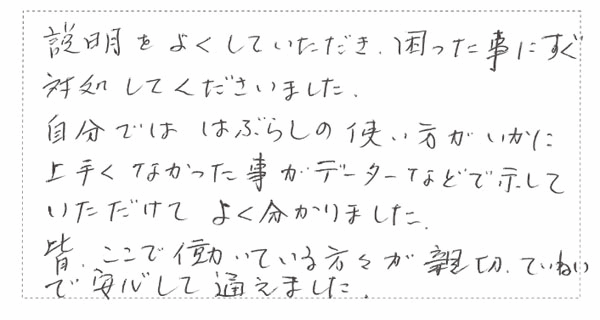 説明をよくしていただき、困った事にすぐ
対処してくださいました.
自分では はぶらしの使い方がいかに
上手くなかった事がデーターなどで示して
いただけて よく分かりました.
皆、ここで働いている方々が親切、ていねい
で安心して通えました.